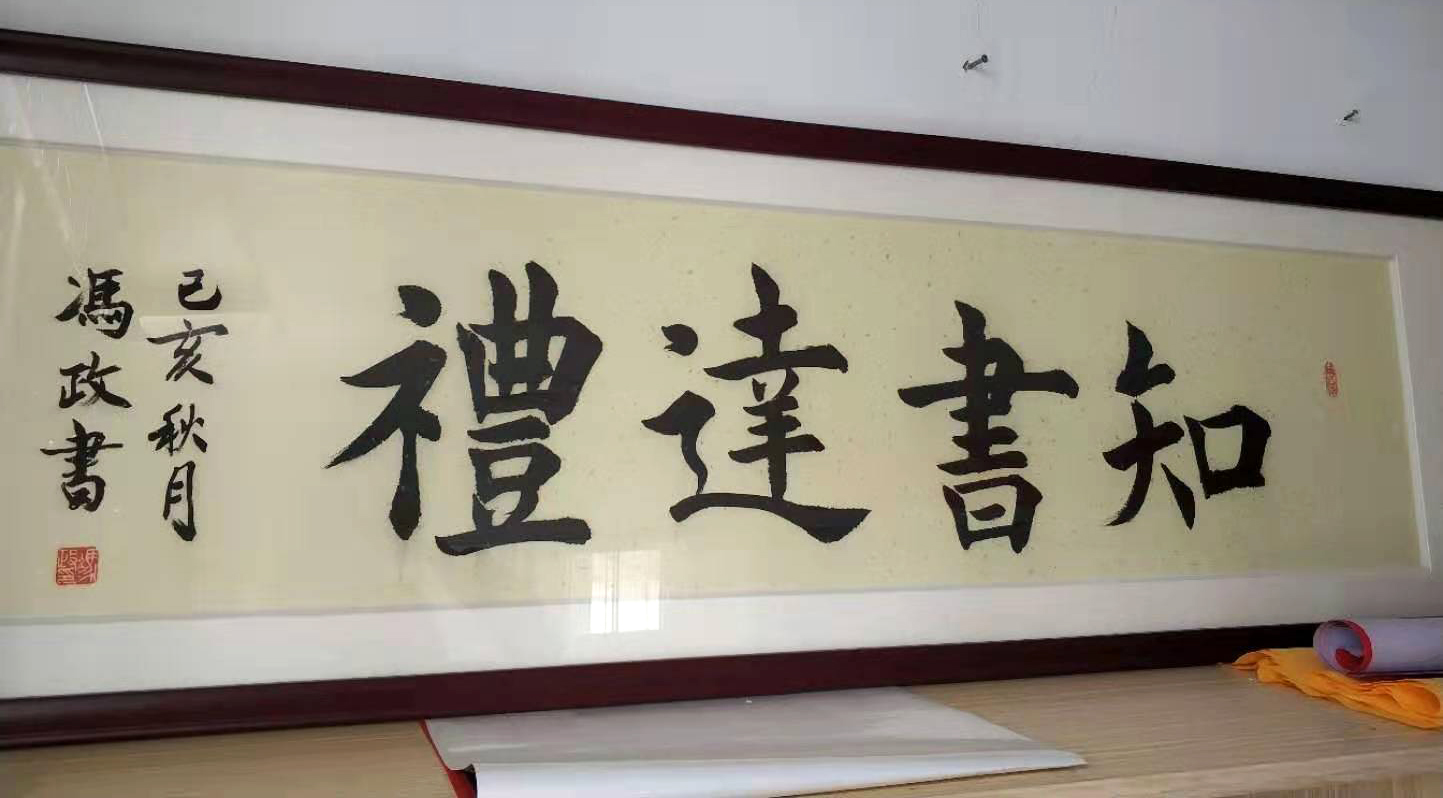 知書達禮
己亥秋月
馮政書